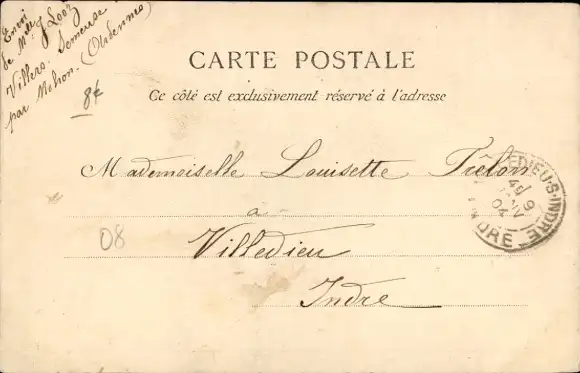 Envoi
de Mlle J Looz
Villers-Semeuse
par Mohon. (Ardennes)
8€
CARTE POSTALE
Ce côté est exclusivement réservé à l'adresse
Mademoiselle Louisette Trêlon
à
Villedieu
Indre
08
EDIEU-S-INDRE
9
04
INDRE